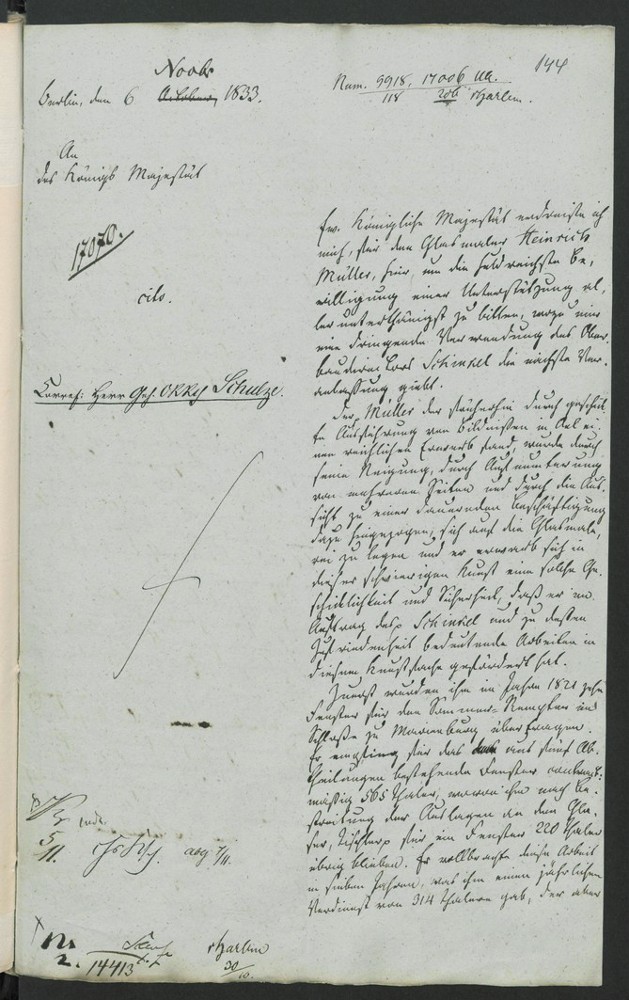 144
Novbr
Berlin, den 6 October, 1833.
Num. 9918, 17006 UA.
118 206 rharlem.
An
des Königs Majestät
17070.
cito.
Corref: Herr Geh. ORRg Schulze.
Ew. Königliche Majestät erdreiste ich
mich, für den Glasmaler Heinrich
Müller, hier, um die huldreichste Be,
willigung einer Unterstützung al,
lerunterthänigst zu bitten, wozu mir
eine dringende Verwendung des Ober-
baudirectors Schinkel die nächste Ver-
anlassung giebt.
Der Müller der früherhin durch geschick
te Ausführung von Bildnissen in Oel ei-
nen reichlichen Erwerb fand, wurde durch
seine Neigung, durch Aufmunterung
von mehreren Seiten und durch die Aus-
sicht zu einer dauernden Beschäftigung
dazu hingezogen, sich auf die Glasmale,
rei zu legen und er erwarb sich in
dieser schwierigen Kunst eine solche Ge-
schicklichkeit und Sicherheit, daß er im
Auftrag des Schinkel und zu dessen
Zufriedenheit bedeutende Arbeiten in
diesem Kunstfache gefördert hat.
Zuerst wurden ihm im Jahre 1821 zehn
Fenster für den Sommer-Remter im
Schlosse zu Marienburg übertragen.
Er empfing für das aus fünf Ab-
theilungen bestehende Fenster contract-
mäßig 565 Thaler, wovon ihm nach Be-
streitung der Auslagen an den Gla-
ser, Tischler für ein Fenster 220 Thaler
übrig blieben. Er vollbrachte diese Arbeit
in sieben Jahren, was ihm einen jährlichen
Verdienst von 314 Thalern gab, der aber
5/11.
abg 7/11.
14413
rharlem
30/10.